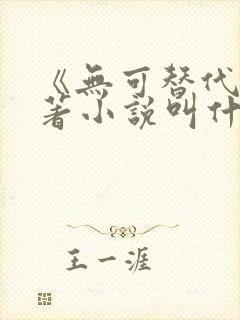 《無可替代
著小說叫什
王一涯